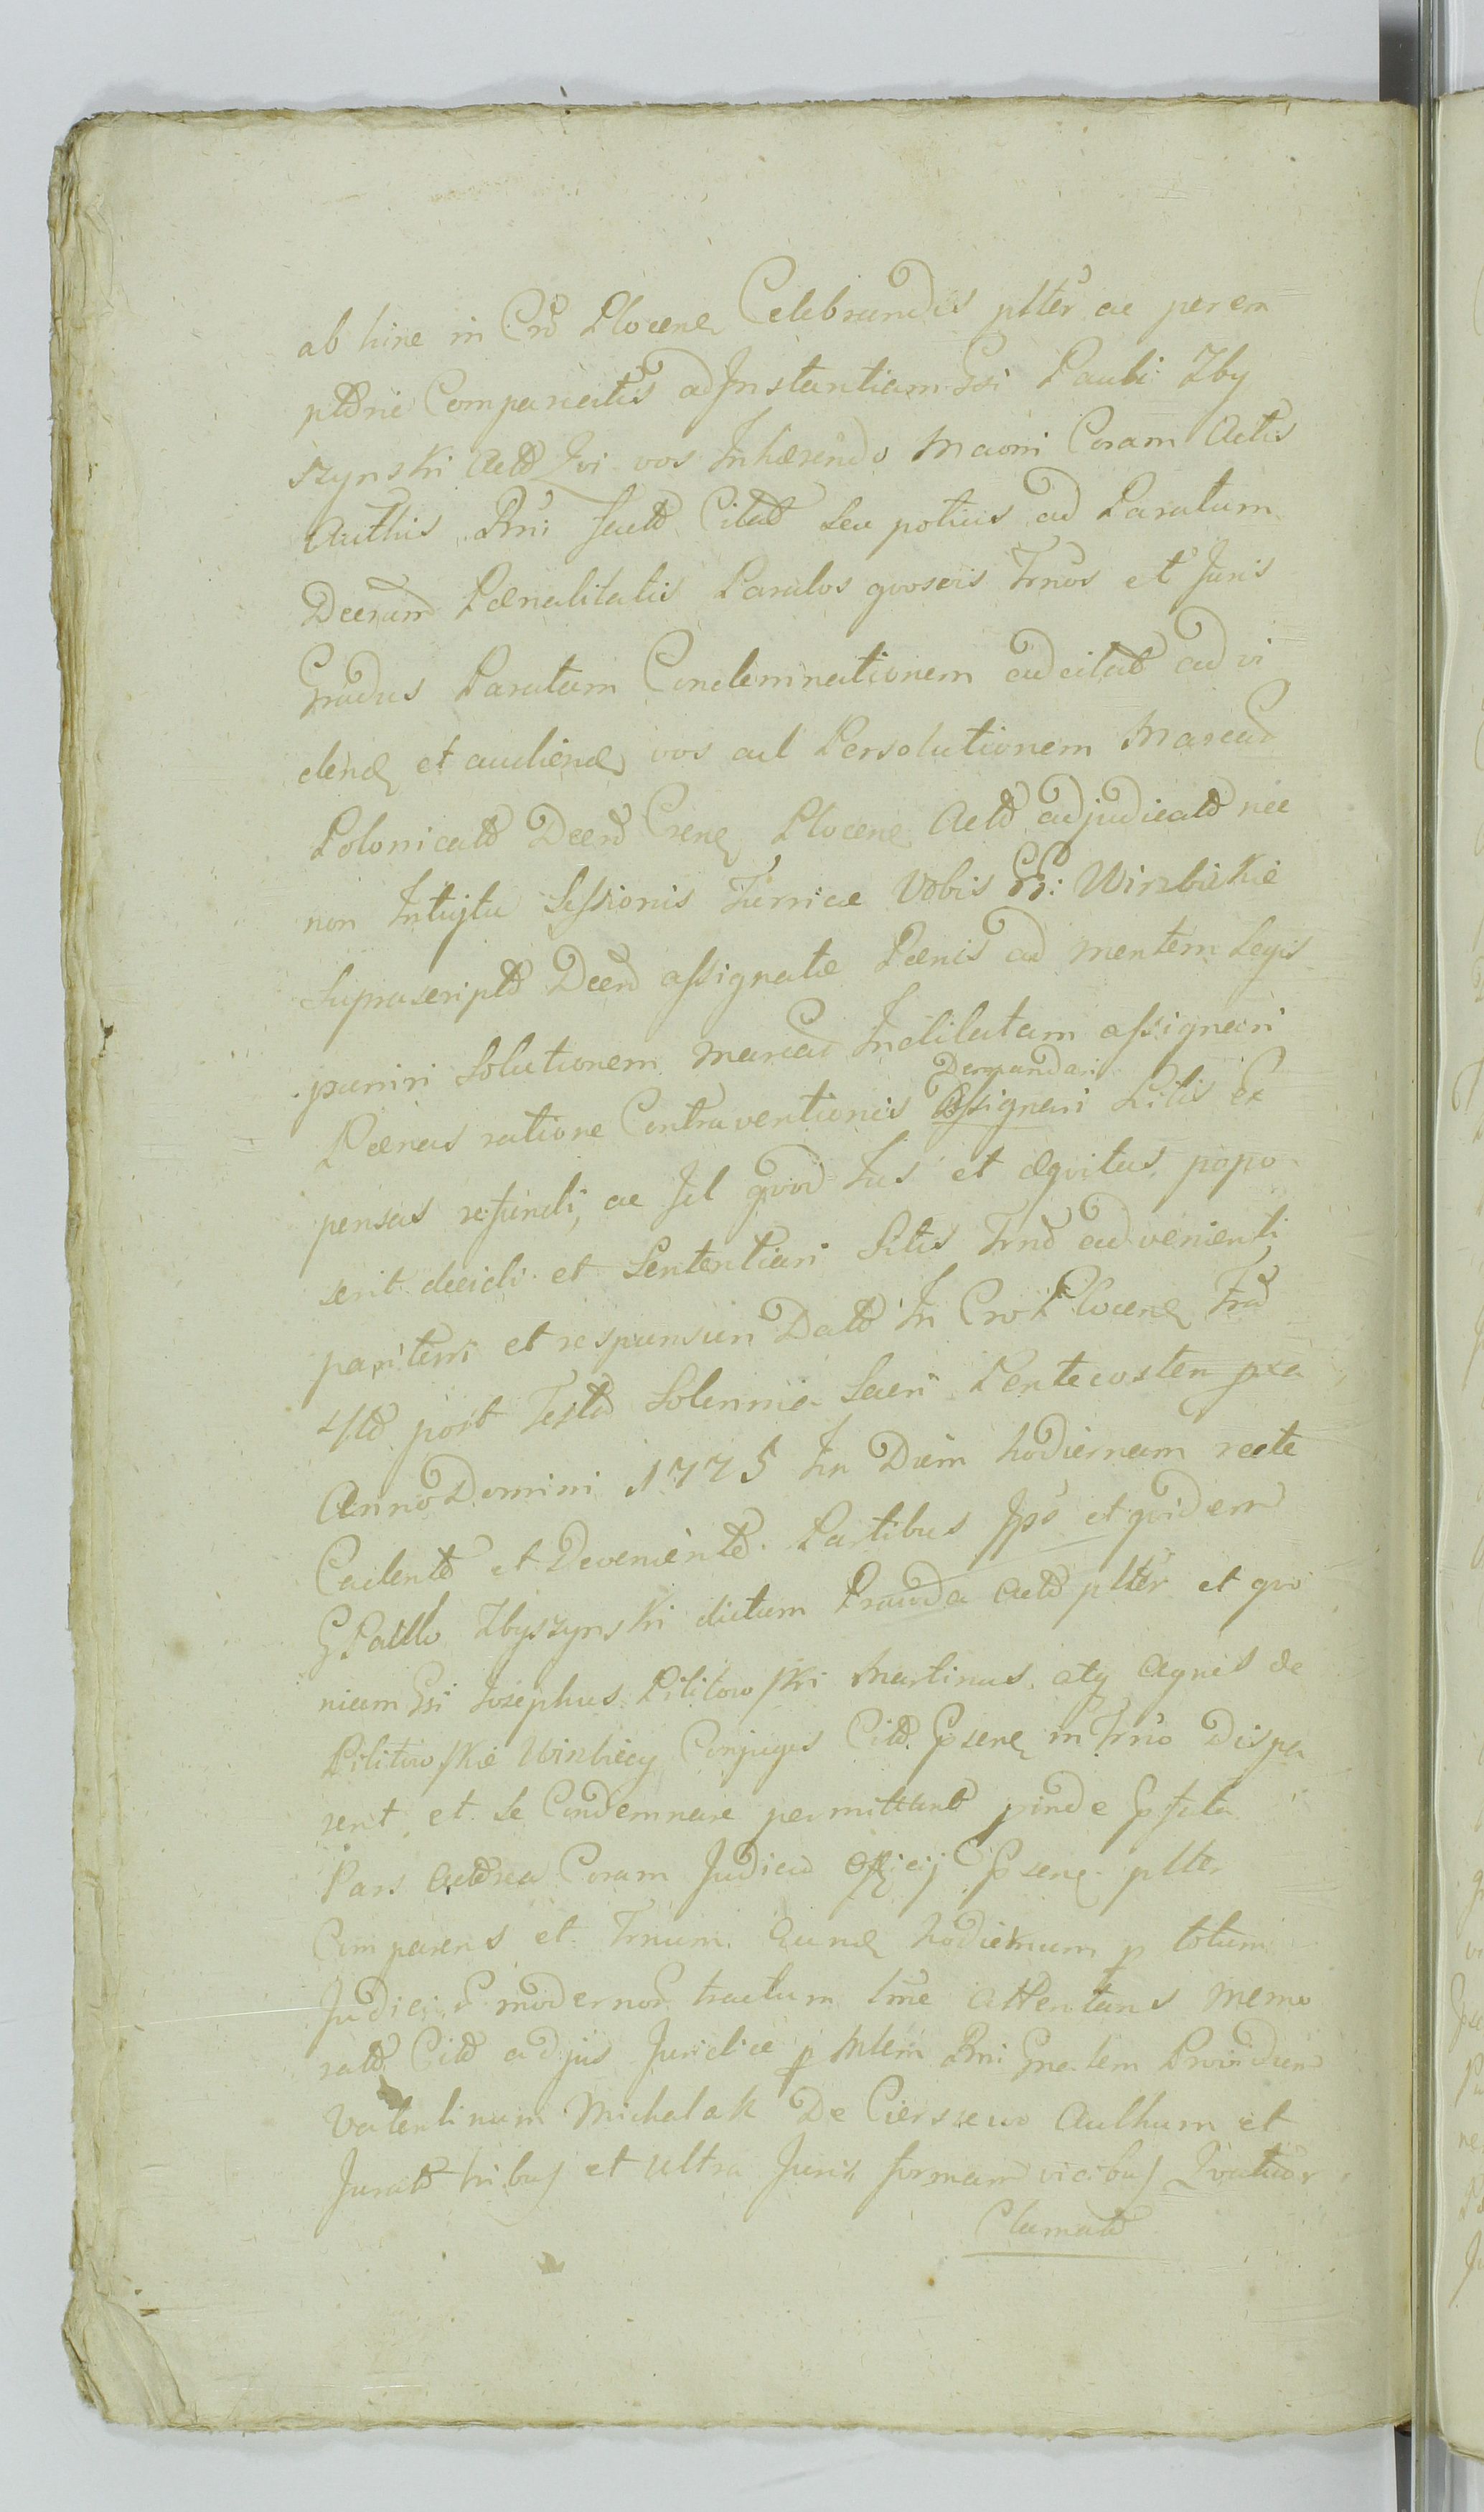 ab hinc in Cro Plocenẽ Celebrandis pltẽr ac perem
ptõrie Compareatis ad Instantiam Gsi Pauli Zby
szynski Actõ Qvi vos Inhærendo Maoni Coram Actis
Authis Rni factõ Citãt seu potius ad Paratum
Decrum Pænalitatis Paratos qvosvis Trnos et Juris
Gradus Paratam Condemnationem adcitãt ad vi
dend et audiend vos ad Persolutionem Marcar
Polonicatõ Decrõ Crens Plocens Actõ adjudicatõ nec
non Intuytu Sessionis Turricæ Vobis GG: Wirzbickie
Suprascriptõ Decrõ assignatæ Pænis ad mentem Legis
puniri Solutionem marcar Indilatam assignari
Demandari
Pænas ratione Contraventionis Assignari Litis Ex
pensas refundi, ac Id qvod Jus et æqvitas popo
scrit decidi et Sententiari Sitis Trnõ advenienti
pariteri et responsuri Datõ In Cro Plocens Frã
4tã post Festã Solennia Sacri Pentecosten pxa
Anno Domini 1775 In Diem hodiernam recte
Cadentẽ et Devenientẽ. Partibus Ipõ et qvidem
G. Paulo Zbyszynski dictum Prawda Actõ pltẽr et qvo
niam Gsi Josephus Pilitowski Martinus atq Agnes de
Pilitowskie Wirzbiccy Conjuges Citõ Psens in Trno Dispa
rent et se Condemnare permittunt proinde Psata
Pars Actõrea Coram Judicio Officij Psens pltẽr
Comparens et Trnum Eund hodiernum p totum
Judicij modernor tractum lme Attentans memo
ratõ Citõ ad jus Juridice p Mlem Rni Gnalem Providum
Valentinum Michalak De Cierszewo Authum et
Juratõ tribus et ultra Juris formam vicibus Qvatuor
Clamatõ